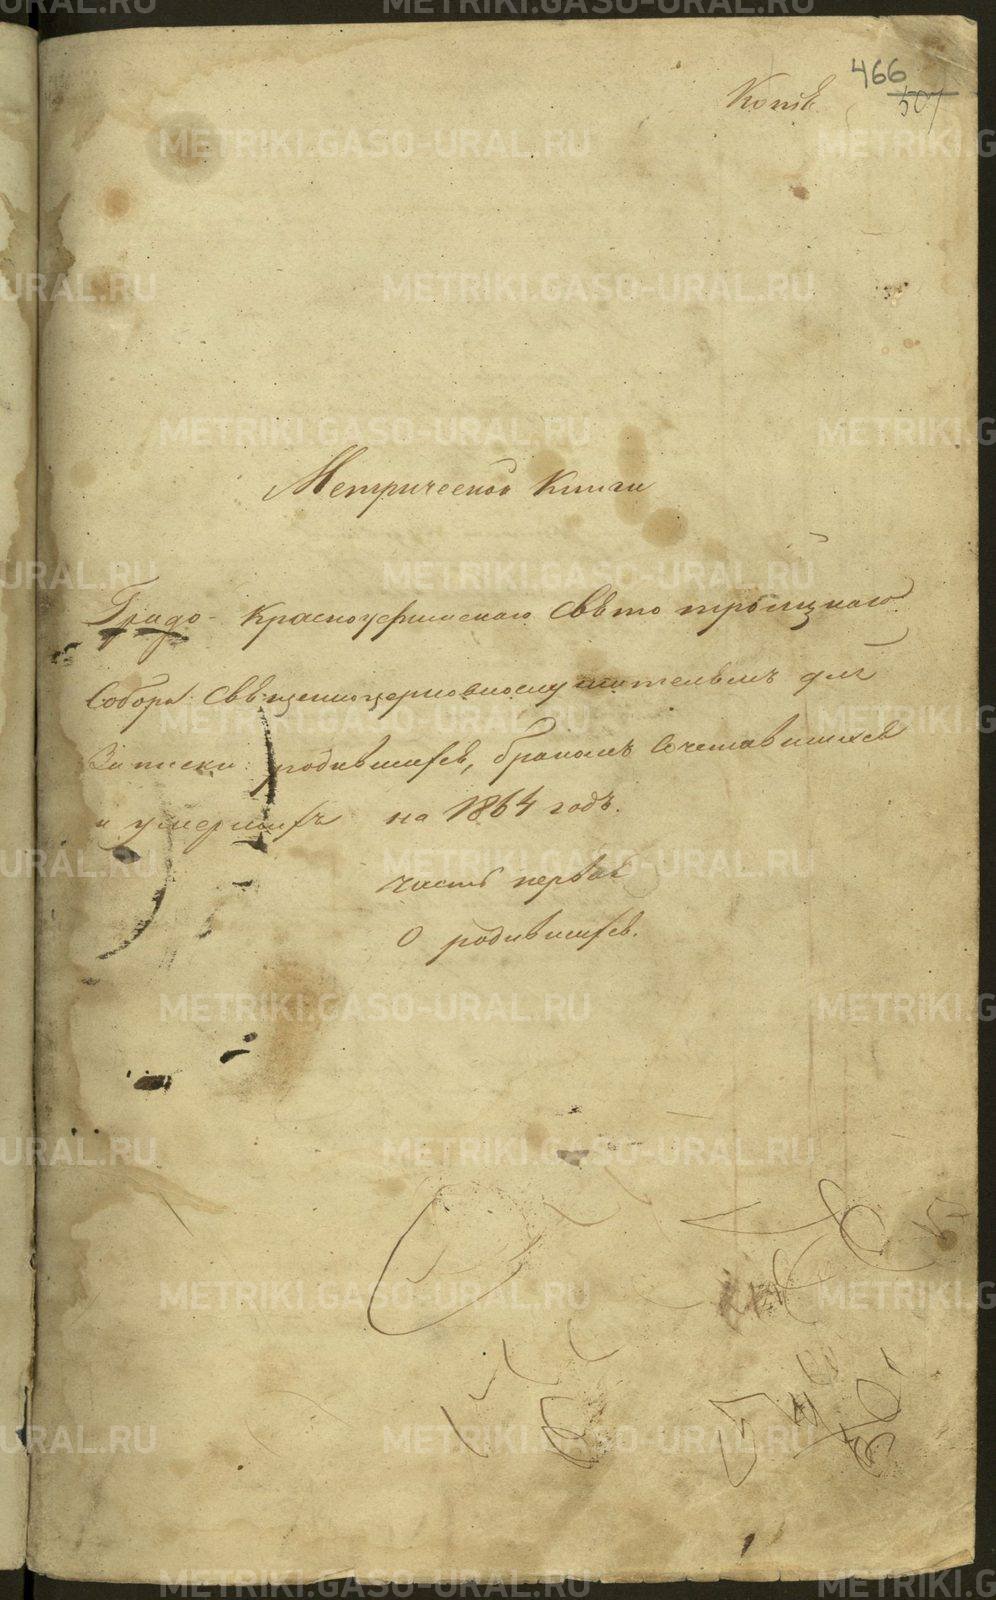 466
507
Копія
Метрической Книги
Градо-Красноуфимскаго Свято троицкаго
Собора Священноцерковнослужителямъ для
Записки родившихся, бракомъ Сочетавшихся
и умершихъ на 1864 годъ.
Часть первая
О родившихся.
METRIKI.GASO-URAL.RU